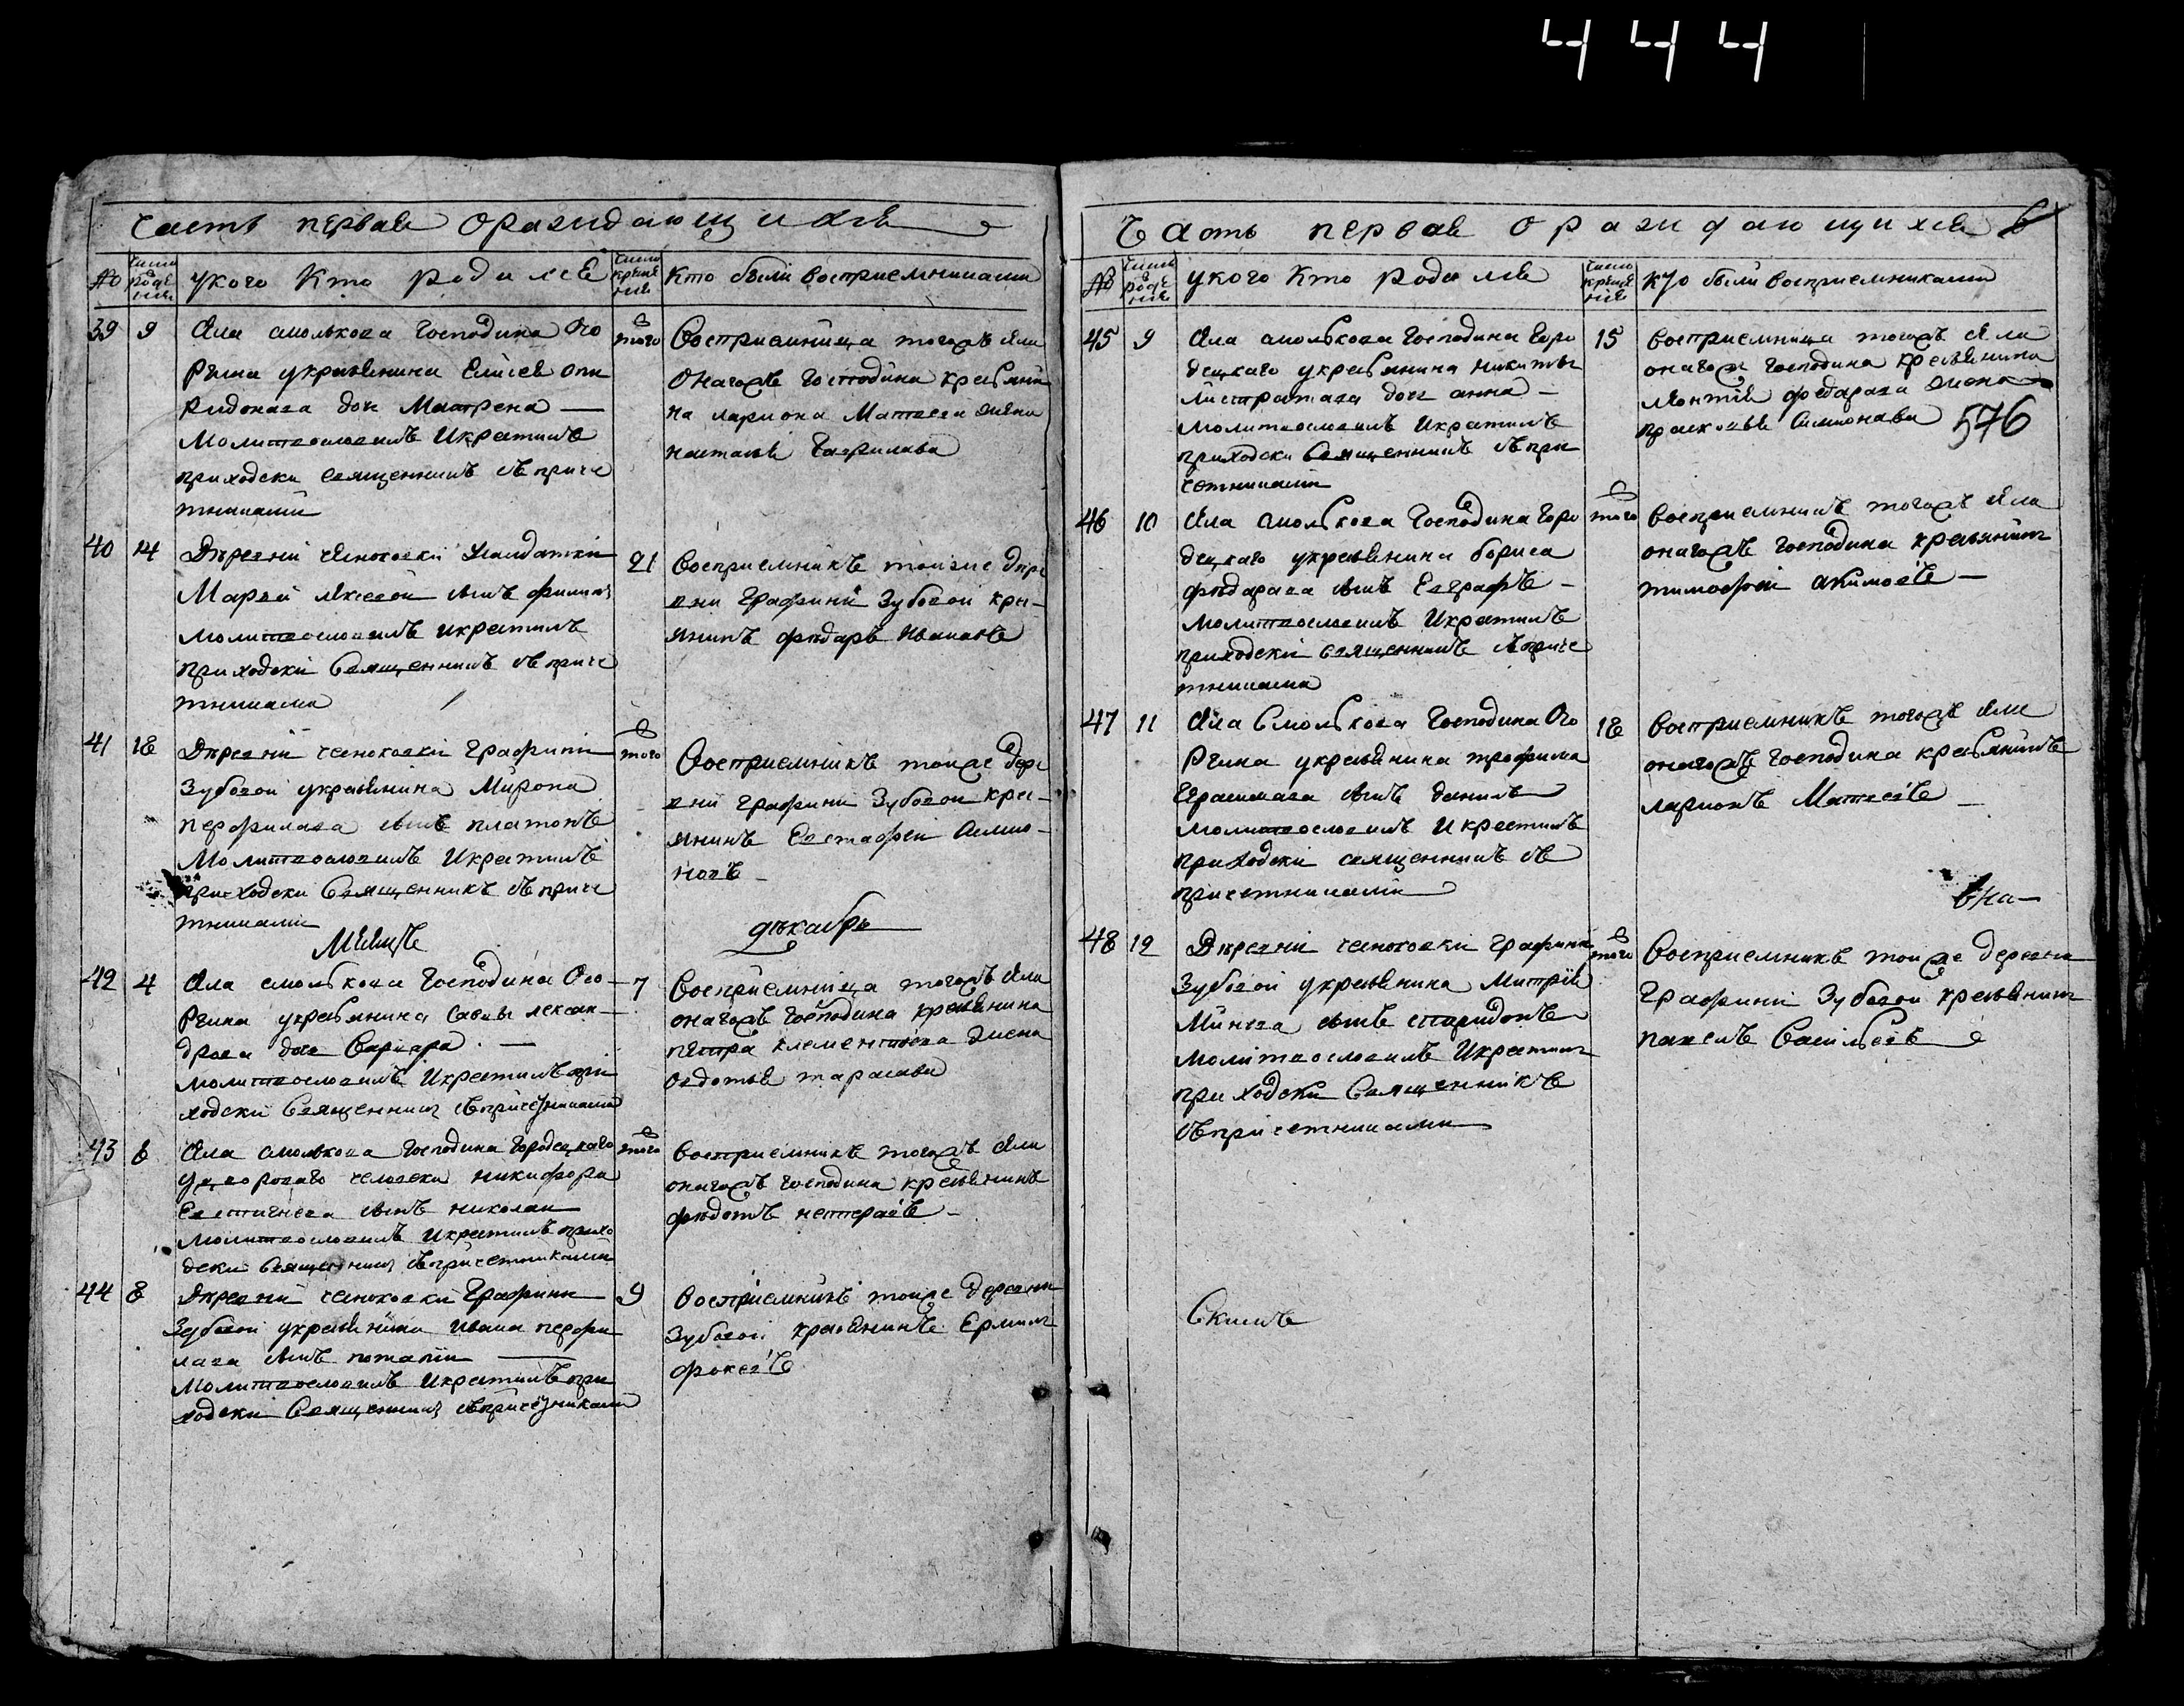 444
часть первая ораждающихся
№
число рожде ния
укого кто родился
число креще ния
кто были восприемниками
39 9 села смолькова Господина Ого
Рѣлина укрестьянина Елисея спи
ридонава дочь Матрена —
Молитвословилъ Икрестилъ
приходски священникъ съ приче
тниками
того
Восприемница тогожъ села
Оногожъ Господина крестьяни
на лариона Матвеева жена
наталья Гаврилава
40 14 Деревни чесноковки
Марьи сынъ филипъ
молитвословилъ икрестилъ
приходски Священникъ съ приче
тниками
21
Восприемникъ тойже дере
вни Графини Зубовой крес
янинъ федаръ Ивановъ
41 18 Деревни чесноковки Графини
Зубовой укрестьянина Мирона
перфилава сынъ платонъ
Молитвословилъ Икрестилъ
приходски Священникъ съ приче
тниками
того
Восприемникъ тойже дере
вни Графини Зубовой крес
янинъ Евстафей Симио
новъ
Месяцъ декабрь
42 4 села смолькова Господина Ого
Рѣлина укрестьянина савы лексан
дрова дочь Варвара —
молитвословилъ Икрестилъ при
ходски Священникъ съпричетниками
7
Восприемница тогожъ села
оногожъ Господина крестьянина
петра клементиева жена
овдотья тарасава
43 6 села смолькова Господина Городецкаго
удвороваго человека никифора
Евстигнева сынъ николай
молитвословилъ икрестилъ прихо
дски Священникъ съпричетниками
того
восприемникъ тогожъ села
оногожъ Господина крестьянинъ
федотъ нестеравъ
44 8 Деревни чесноковки Графини
Зубовой укрестьянина Ивана перфи
лава сынъ потапий —
Молитвословилъ Икрестилъ при
ходски Священникъ съпричетниками
9
Восприемникъ тойже Деревни
Зубовой крестьянинъ Ермилъ
фокеевъ
Часть первая ораждающихся
№
число рожде ния
укого кто родился
число креще ния
кто были восприемниками
576
45 9 села смолькова Господина Горо
децкаго укрестьянина никиты
листратава дочь анна —
молитвословилъ Икрестилъ
приходски Священникъ съпри
четниками
15
восприемница тогожъ села
оногожъ Господина крестьянина
леонтия федарава жена
прасковья Симионава
46 10 села смолькова Господина Горо
децкаго укрестьянина бориса
федарава сынъ Евграфъ —
молитвословилъ Икрестилъ
приходски священникъ съприче
тниками
того
восприемникъ тогожъ села
оногожъ Господина крестьянинъ
тимофей акимовъ —
47 11 села Смолькова Господина Ого
Рѣлина укрестьянина трофима
Герасимава сынъ данилъ
молитвословилъ Икрестилъ
приходски священникъ съ
причетниками
18
восприемникъ тогожъ села
оногожъ Господина крестьянинъ
ларионъ Матвеевъ —
48 12 Деревни чесноковки Графини
Зубовой укрестьянина Митрия
Минева сынъ спиридонъ
молитвословилъ Икрестилъ
приходски Священникъ
съпричетниками
того
Восприемникъ тойже деревни
Графини Зубовой крестьянинъ
павелъ Васильевъ